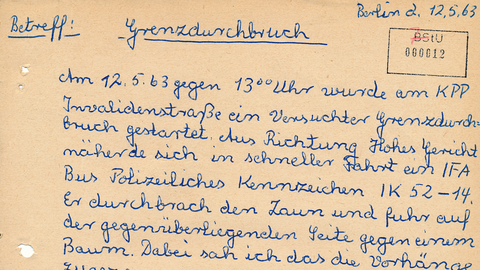 Berlin d. 12,5,63
Betreff: Grenzdurchbruch
BStU
000012
Am 12.5.63 gegen 13°° Uhr wurde am KPP
Invalidenstraße ein Versuchter Grenzdurch-
bruch gestartet. Aus Richtung Hohes Gericht
näherde sich in schneller Fahrt ein IFA
Bus Polizeiliches Kennzeichen IK 52-14.
Er durchbrach den Zaun und fuhr auf
der gegenüberliegenden Seite gegen einem
Baum. Dabei sah ich das die Vorhänge